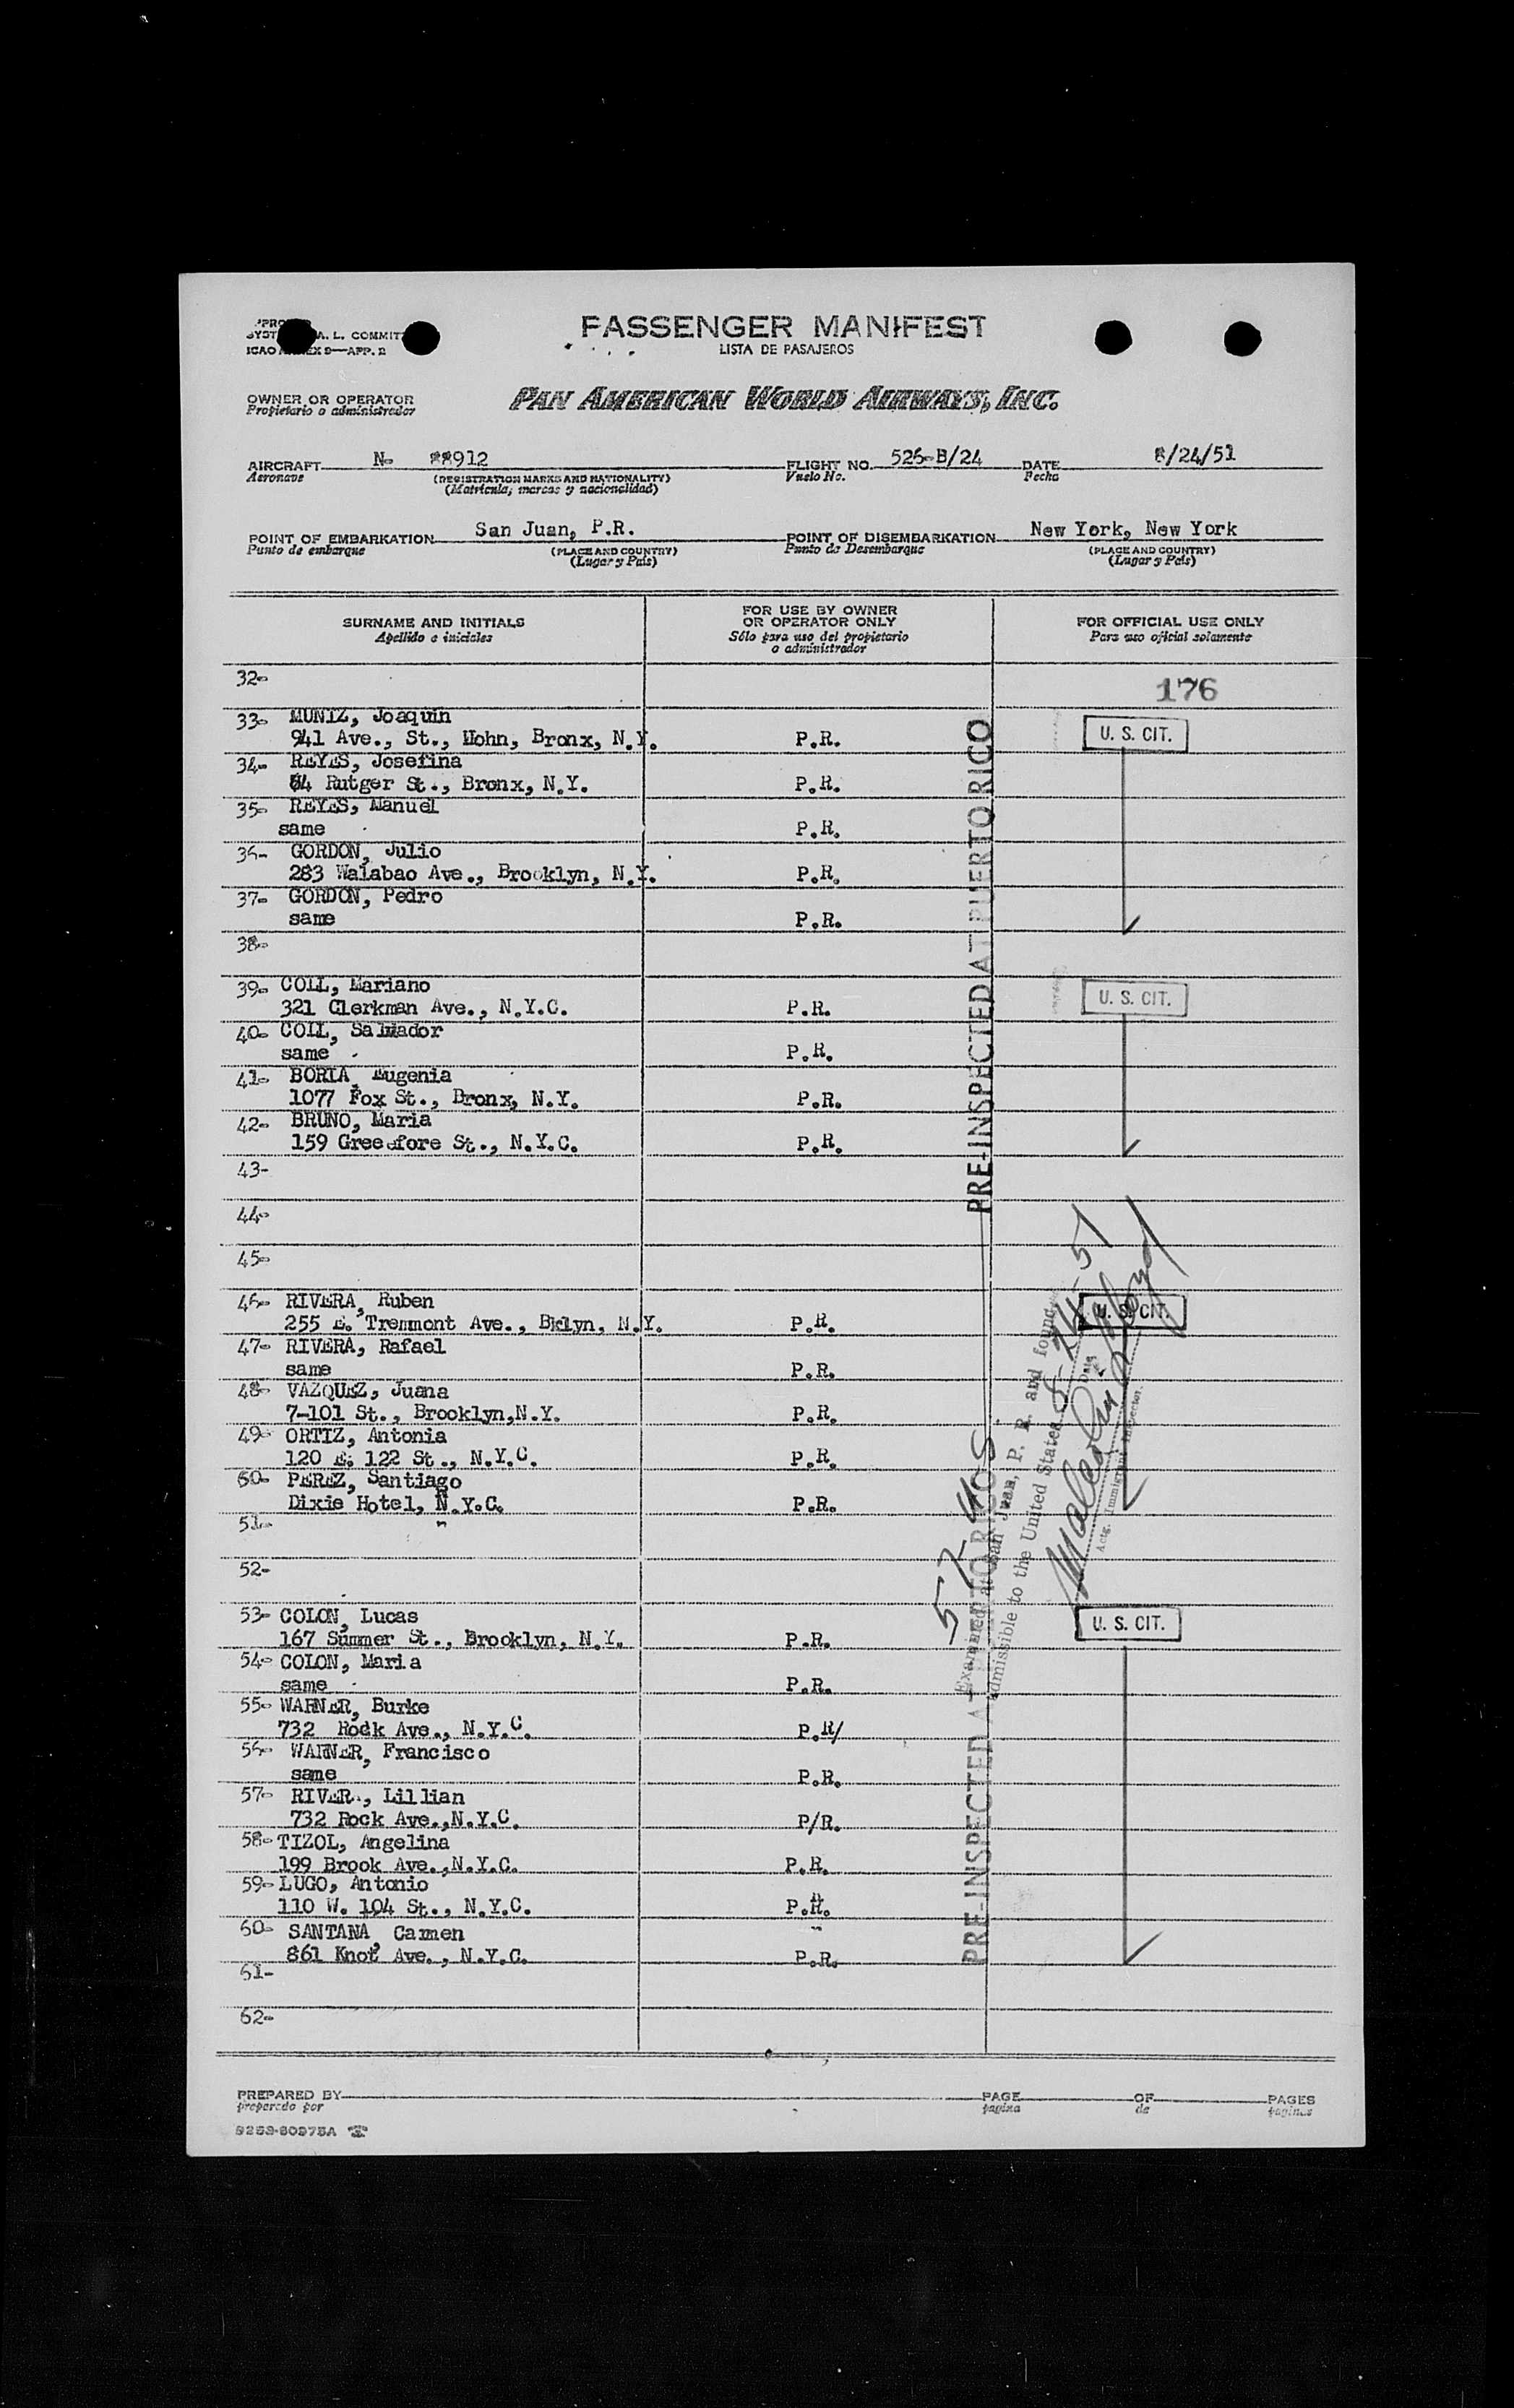 PASSENGER MANIFEST
LISTA DE PASAJEROS
A. L. COMMIT
ICAO ANNEX 9—APP. 2
OWNER OR OPERATOR
Propietario o administrador
PAN AMERICAN WORLD AIRWAYS, INC.
AIRCRAFT N- 88912 FLIGHT NO. 526-B/24 DATE 8/24/51
Aeronave (REGISTRATION MARKS AND NATIONALITY) Vuelo No. Fecha
(Matricula, marcas y nacionalidad)
POINT OF EMBARKATION San Juan, P.R. POINT OF DISEMBARKATION New York, New York
Punto de embarque (PLACE AND COUNTRY) Punto de Desembarque (PLACE AND COUNTRY)
(Lugar y País) (Lugar y País)
SURNAME AND INITIALS
Apellido e iniciales
FOR USE BY OWNER
OR OPERATOR ONLY
Sólo para uso del propietario
o administrador
FOR OFFICIAL USE ONLY
Para uso oficial solamente
32-
176
33- MUNIZ, Joaquin
941 Ave., St., Mohn, Bronx, N.Y. P.R. U. S. CIT.
34- REYES, Josefina
64 Rutger St., Bronx, N.Y. P.R.
35- REYES, Manuel
same P.R.
36- GORDON, Julio
283 Walabao Ave., Brooklyn, N.Y. P.R.
37- GORDON, Pedro
same P.R.
38-
39- COLL, Mariano
321 Clerkman Ave., N.Y.C. P.R. U. S. CIT.
40- COLL, Salvador
same P.R.
41- BORIA, Eugenia
1077 Fox St., Bronx, N.Y. P.R.
42- BRUNO, Maria
159 St., N.Y.C. P.R.
43-
44-
45-
46- RIVERA, Ruben
255 E. Tremmont Ave., Bklyn, N.Y. P.R. U. S. CIT.
47- RIVERA, Rafael
same P.R.
48- VAZQUEZ, Juana
7-101 St., Brooklyn,N.Y. P.R.
49- ORTIZ, Antonia
120 E. 122 St., N.Y.C. P.R.
50- PEREZ, Santiago
Dixie Hotel, N.Y.C. P.R.
51-
52-
53- COLON, Lucas
167 Summer St., Brooklyn, N.Y. P.R. U. S. CIT.
54- COLON, Maria
same P.R.
55- WARNER, Burke
732 Rodk Ave., N.Y.C. P.R/
56- WARNER, Francisco
same P.R.
57- RIVERA, Lillian
732 Rock Ave.,N.Y.C. P/R.
58- TIZOL, Angelina
199 Brook Ave.,N.Y.C. P.R.
59- LUGO, Antonio
110 W. 104 St., N.Y.C. P.R.
60- SANTANA, Carmen
861 Knot Ave., N.Y.C. P.R.
61-
62-
PRE-INSPECTED AT PUERTO RICO
PRE-INSPECTED AT PUERTO RICO
57 405
Examined at San Juan, P. R. and found
admissible to the United States 8-24-51
Date
Actg. Immigrant Inspector.
PREPARED BY PAGE OF PAGES
preparado por pagina de paginas
9253-80975A